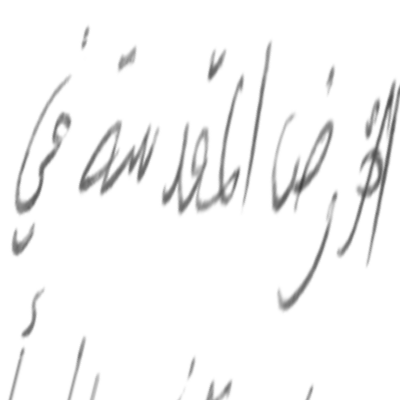 الأرض المقدسة في